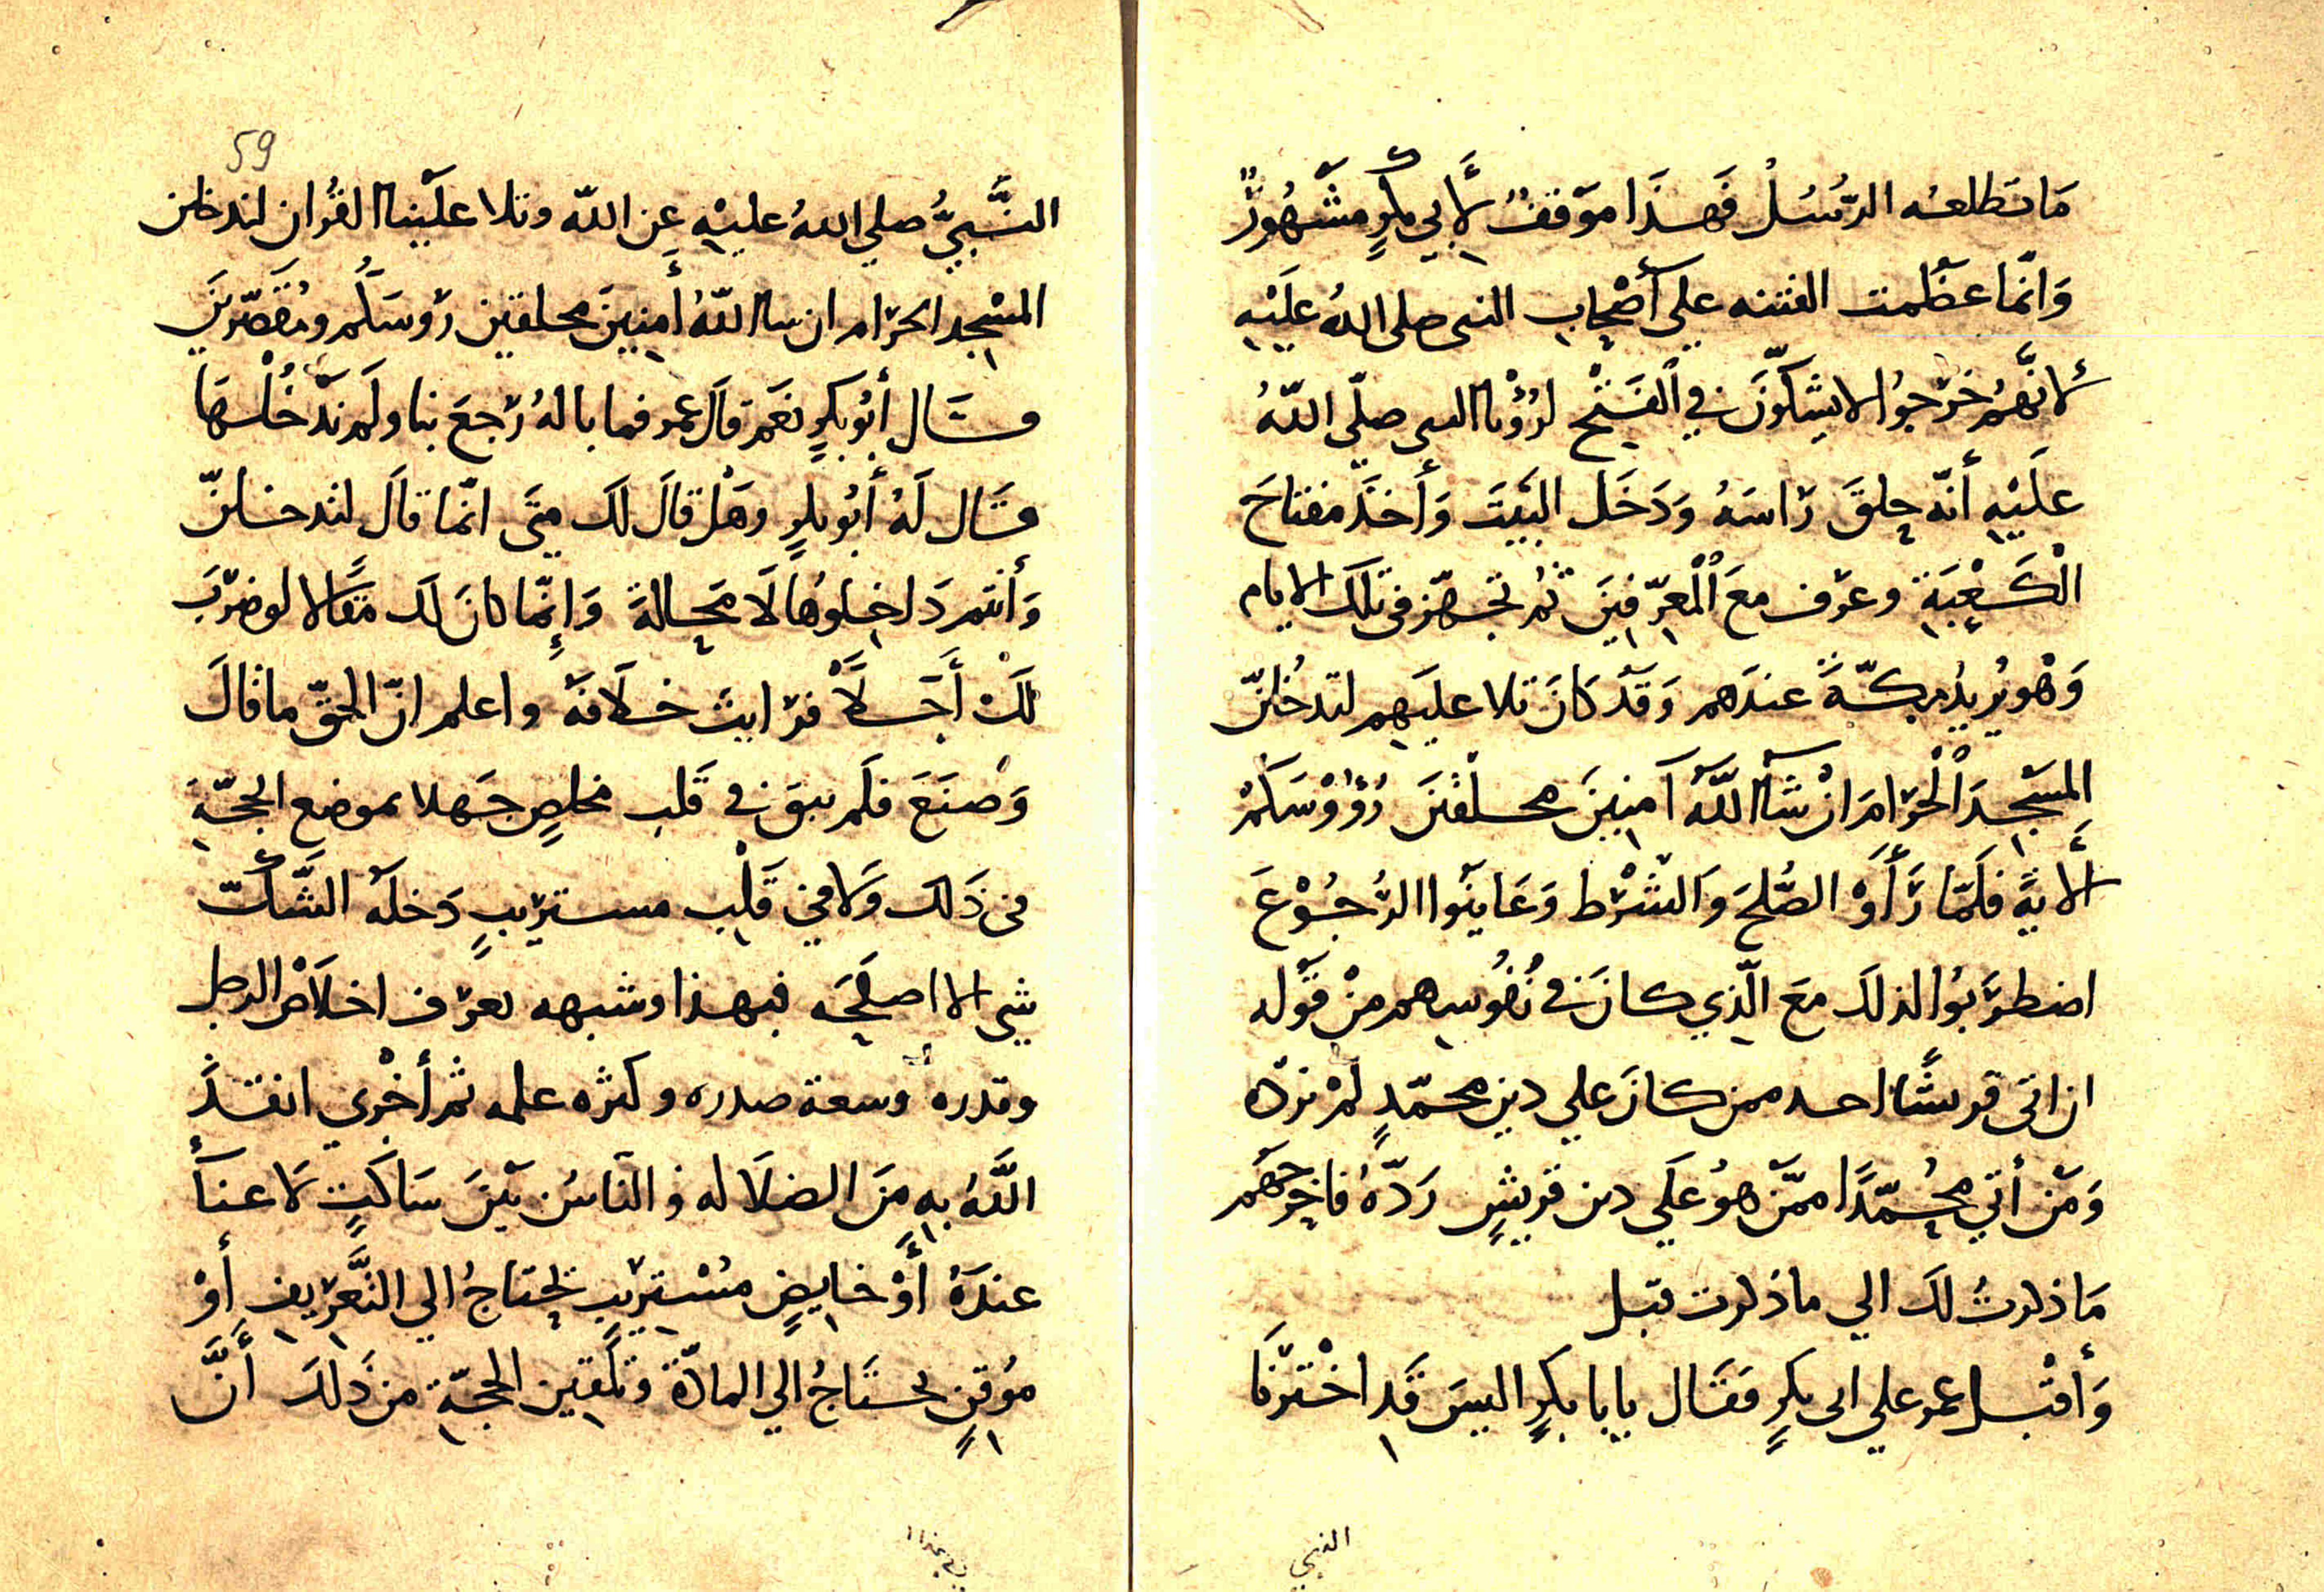 مَا تطلعه الرُّسُلُ فَهذَا موَقفٌ لأَبي بكرٍ مشَهُورٌ
وَانّما عظُمت الفتنه علي أصْحاب النبى صلى اللهُ علَيْهِ
لأنَّهُمْ خرَجوُا لا يشكّونَ في الفَتْح لرُؤْيا النبى صلّى اللّهُ
علَيْهِ أنّه حلقَ رَاسَهُ وَدَخَل البَيتَ وَأَخذَ مفتاحَ
الْكَعْبَةِ وعرّف معَ الْمُعرّفينَ ثُم تجهّز فى تلكَ الايام
وَهْو يُريدُ مكّةَ عندَهم وَقَدْ كَانَ تلا عليَهِم لتدخُلنّ
المسَجدَ الْحْرَامَ انْ شَآ اللّهُ آمنِينَ محلقينَ رُؤوْسَكمْ
الأيةَ فلَمّا رَأَوْ الصُّلحَ وَالشّرْط وَعَاينَوُا الرُّجُوْعَ
اضطرَبوُا لذلكَ معَ الّذِي كانَ في نُفُوسِهم منْ قَوْله
ان اتى قريشًا احد ممن كانَ علي دين محمّدٍ لمْ نردّه
وَمَن أتي محُمّدًا ممّن هوُ علَي دين قريشٍ ردّهُ فاخرجَهم
مَا ذكرتُ لكَ الي ما ذكرت قبل
وَأقبْل عمر علي ابى بكرٍ فقَال يابا بكرٍ اليسَ قَد اخْبَرنَا
النبي
59
النَّبيُّ صلي اللهُ عليْهِ عَن اللّه وتلا علَيْنا القُران لتدخلن
المسْجد الحَرَام ان شا اللّهُ أَمِنِينَ محلقين رؤوسَكُم ومُقَصّرينَ
فقَال أَبوُ بكرٍ نعَم قالَ عمر فما بالهُ رَجعَ بنا ولَم ندْخُلْهَا
فقَال لَهُ أَبُو بكرٍ وهَلْ قالَ لكَ متَى انّما قالَ لتدخلنّ
وَأنتم دَاخلوُها لَا محَالةَ وَإِنّما كانَ لكَ مقَالا لو ضرَبَ
لكْ أَجَلاً فرَايتَ خلَافهَ واعلم انّ الحقّ ما قالَ
وَصنَعَ فلَم يبقَ في قَلب مخلصٍ جَهلا بموضع الحجّةِ
في ذَلكَ وَلا في قَلْبِ مستريبٍ دَخلَهُ الشَّكّ
شي الا اصلحَه فبهذا وشبهه يعرَف اخلَاص الرجل
وقدره وسعة صدره وكثره علمه ثم أخْرِي انقذَ
اللَّهُ بهِ منَ الضلَاله والنَاسُ بيْنَ سَاكتٍ لا عنآَ
عندَهْ أَوْ خايضٍ مسْتريبٍ يحتاجُ الي التَّعْريفِ أَوْ
موُقنٍ يحتَاجُ الي المادّة وتلَقين الحجّة من ذَلكَ أَنَّ